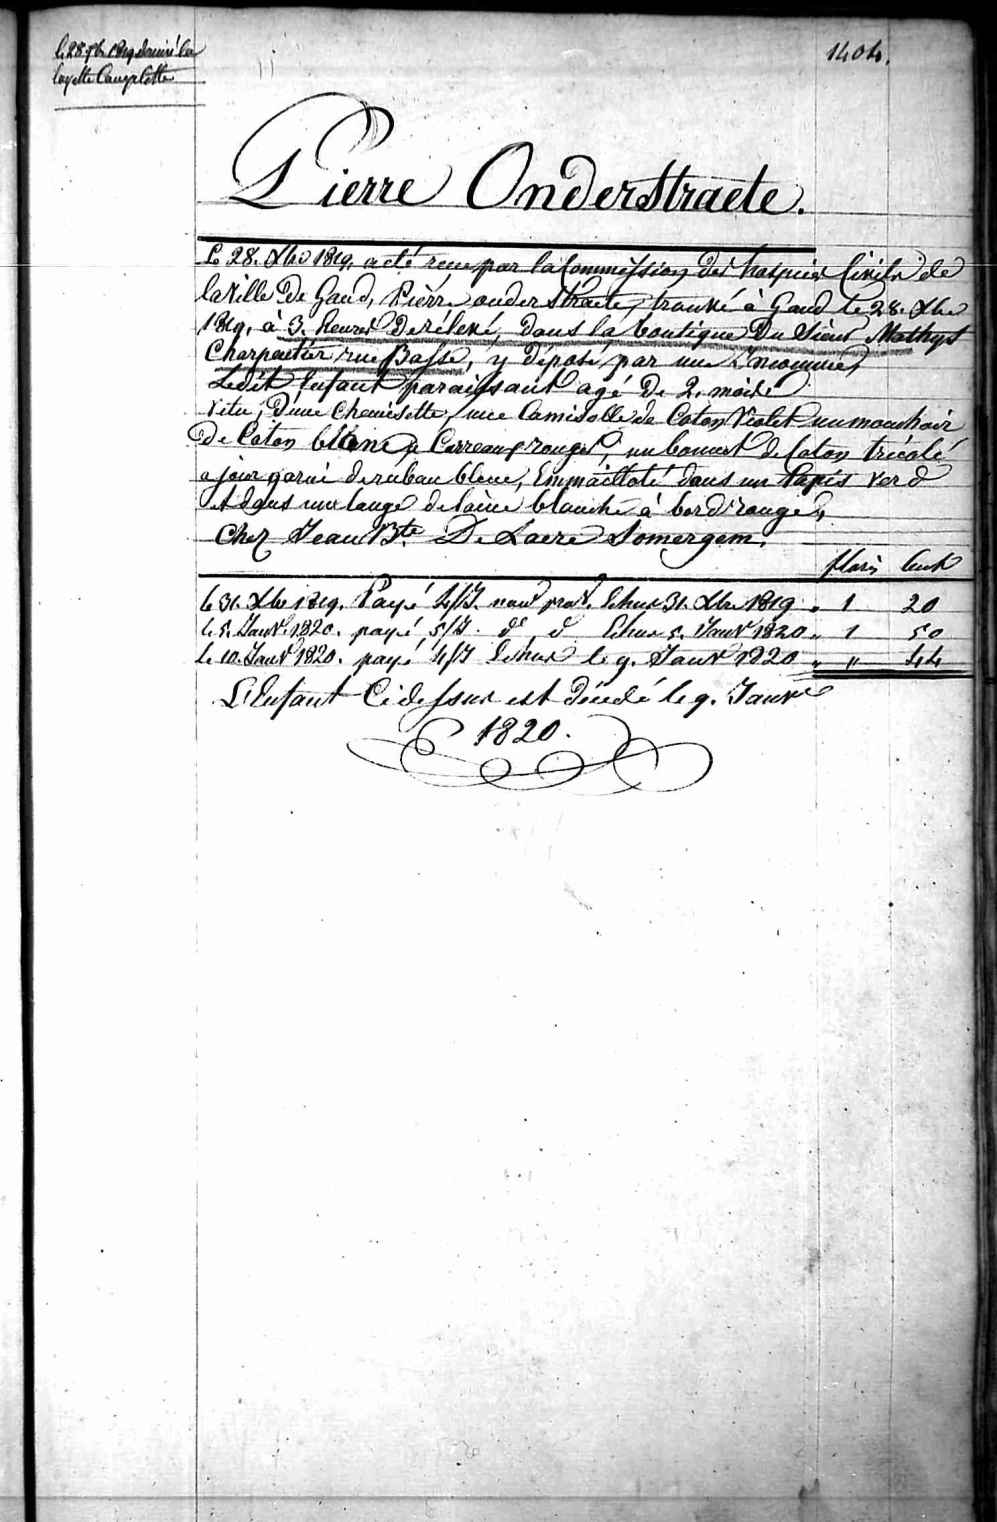 le 28 Xbre 1819 donné la
layette Complette
1404.
Pierre Onderstraete.
Le 28. Xbre 1819. a eté recu par la Commission des hospices Civils de
la Ville de Gand, Pierre onderstraete, trouvé à Gand le 28. Xbre
1819. à 3. heures de rélevé, dans la boutique du Sieur Mathys
Charpentier rue Basse, y déposé par une Inconnue,
Ledit Enfant paraissant agé de 2. mois
Vetu, d'une Chemisette, une Camisolle de Coton Violet un mouchoir
de Coton blanc à Carreaux rouges, un bonnet de Coton tricoté
a jour garni de ruban bleue, Emmailloté dans un tapis verd
et dans un lange de laine blanche à bord rouge,
Chez Jean Bte. De Laere Somergem.
florin Cent
le 31. Xbre 1819. Payé 4/J. échus 31. Xbre 1819 " 1 20
le 5. Janvr. 1820. payé 5/J. do. do Echus 5. Janvr 1820 " 1 50
Le 10. Janvr 1820. payé 4/J Echus le 9. Janvr 1820 " " 44
L'Enfant Cidessus est décédé le 9. Janvr
1820.